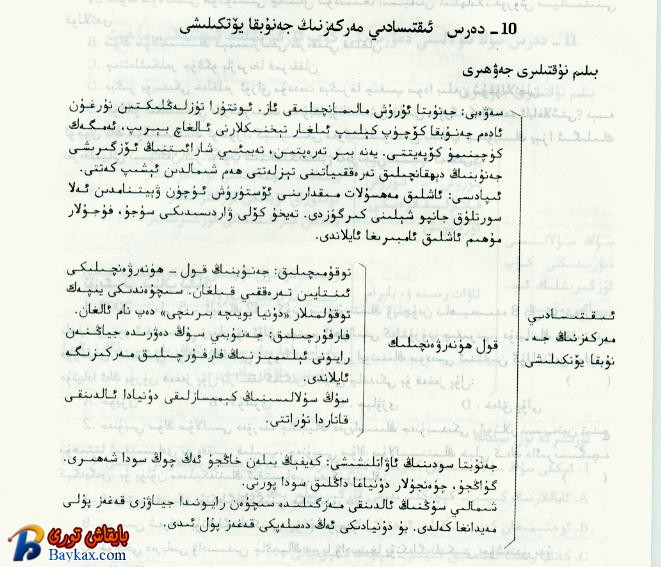 10 ـ دەرس ئىقتىسادىي مەركەزنىڭ جەنۇبقا يۆتكىلىشى
بىلىم نۇقتىلىرى جەۋھىرى
سەۋەبى: جەنۇبتا ئۇرۇش مالىمانچىلىقى ئاز. ئوتتۇرا تۈزلەڭلىكتىن نۇرغۇن
ئادەم جەنۇبقا كۆچۈپ كېلىپ ئىلغار تېخنىكىلارنى ئالغاچ بېرىپ، ئەمگەك
كۈچىنىمۇ كۆپەيتتى. يەنە بىر تەرەپتىن، تەبىئىي شارائىتنىڭ ئۆزگىرىشى
جەنۇبنىڭ دېھقانچىلىق تەرەققىياتىنى تېزلەتتى ھەم شىمالدىن ئېشىپ كەتتى.
ئىپادىسى: ئاشلىق مەھسۇلات مىقدارىنى ئۆستۈرۈش ئۈچۈن ۋيېتنامدىن ئەلا
سورتلۇق جانپو شېلىنى كىرگۈزدى. تەيخۇ كۆلى ۋادىسىدىكى سۇجۇ، خۇجۇلار
مۇھىم ئاشلىق ئامبىرىغا ئايلاندى.
ئىقتىسادىي
مەركەزنىڭ جە‍ـ
نۇبقا يۆتكىلىشى
قول ھۈنەرۋەنچىلىك
توقۇمىچىلىق: جەنۇبنىڭ قول ـ ھۈنەرۋەنچىلىكى
ئىنتايىن تەرەققىي قىلغان. سىچۈەندىكى يىپەك
توقۇلمىلار «دۇنيا بويىچە بىرىنچى» دەپ نام ئالغان.
فارفۇرچىلىق: جەنۇبىي سۇڭ دەۋرىدە جياڭنەن
رايونى ئېلىمىزنىڭ فارفۇرچىلىق مەركىزىگە
ئايلاندى.
سۇڭ سۇلالىسىنىڭ كېمىسازلىقى دۇنيادا ئالدىنقى
قاتاردا تۇراتتى.
جەنۇبتا سودىنىڭ ئاۋاتلىشىشى: كەيفېڭ بىلەن خاڭجۇ ئەڭ چوڭ سودا شەھىرى.
گۇاڭجۇ، چۈەنجۇلار دۇنياغا داڭلىق سودا پورتى.
شىمالىي سۇڭنىڭ ئالدىنقى مەزگىلىدە سىچۈەن رايونىدا جياۋزى قەغەز پۇلى
مەيدانغا كەلدى. بۇ دۇنيادىكى ئەڭ دەسلەپكى قەغەز پۇل ئىدى.
بايقاش تورى
Baykax.com